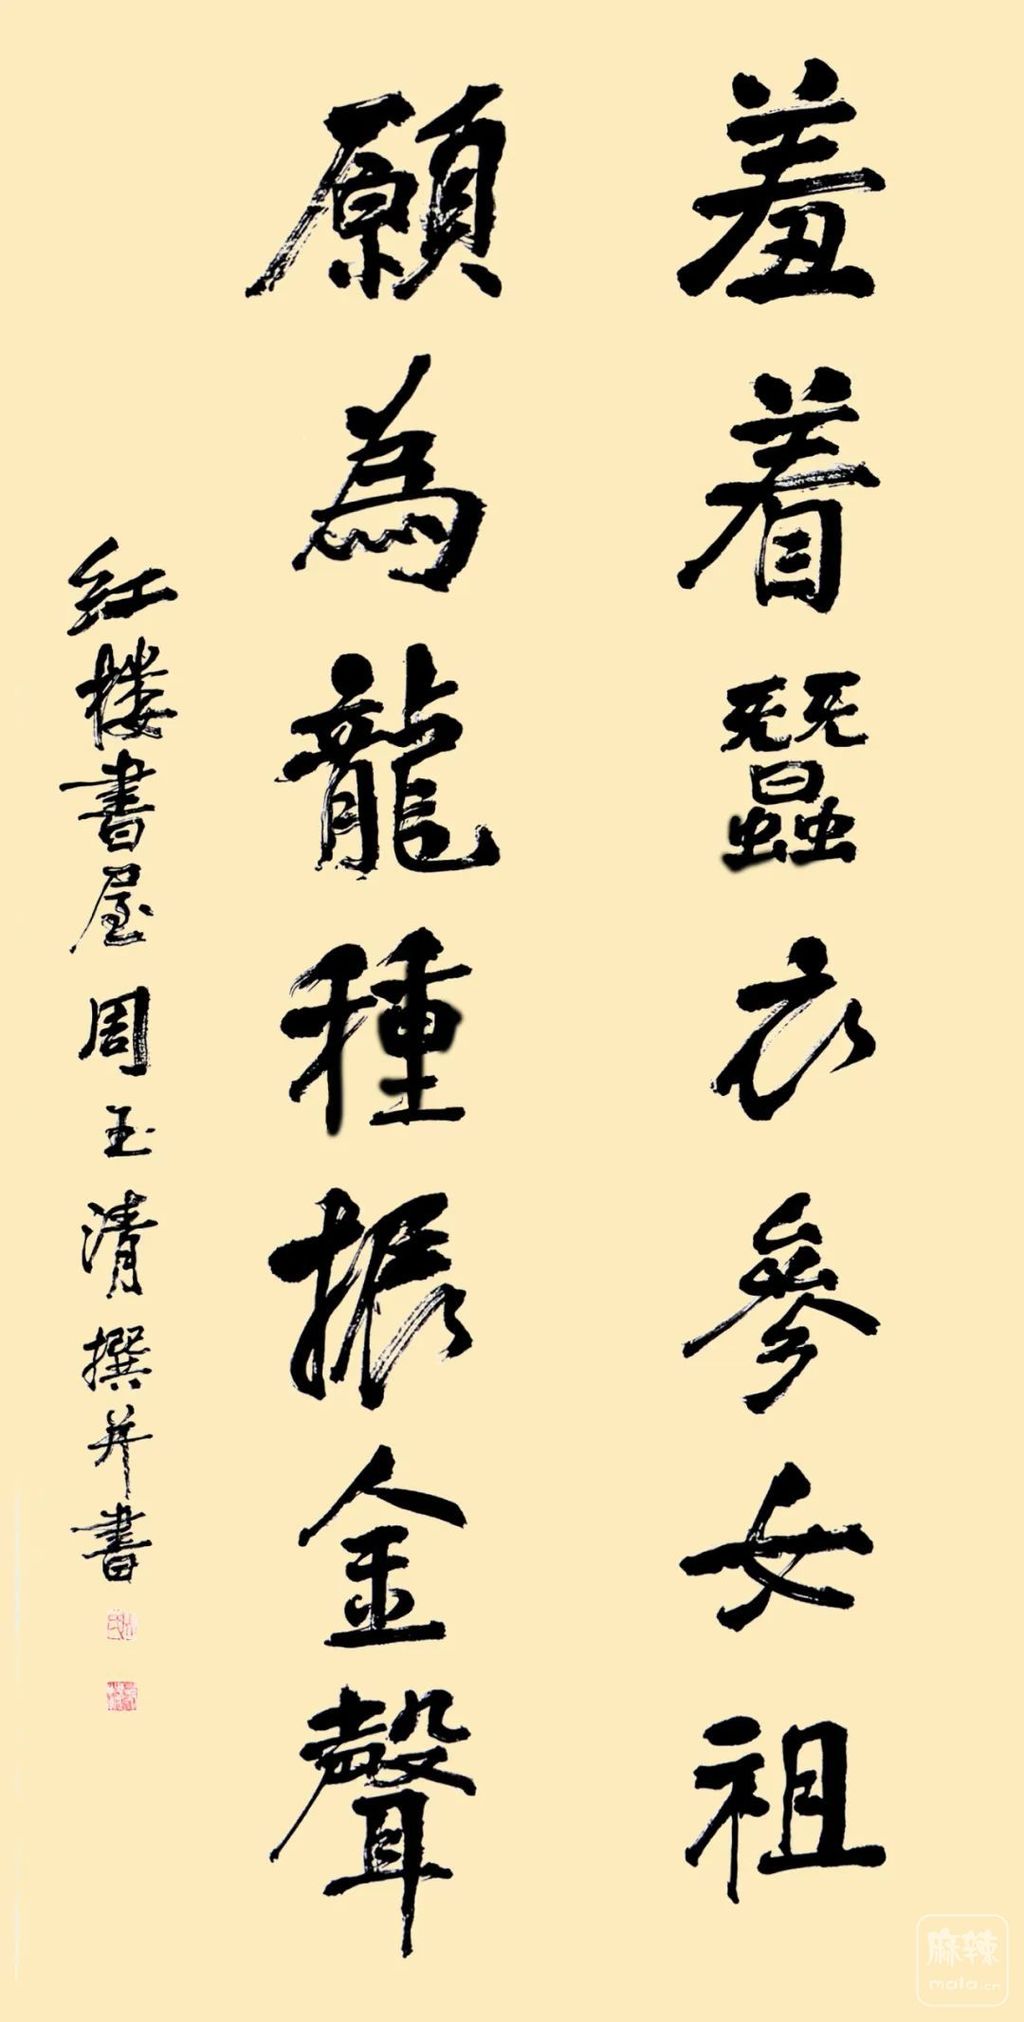 羞着蠶衣參女祖
願為龍種振金聲
红楼書屋周玉清撰并書
麻辣
mala.cn